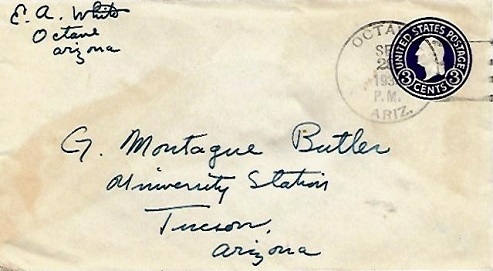 E. A. White
Octane
Arizona
OCTA
SE
2
193
P.M.
ARIZ.
UNITED STATES POSTAGE
3 CENTS 3
G. Montague Butler
University Station
Tucson,
Arizona